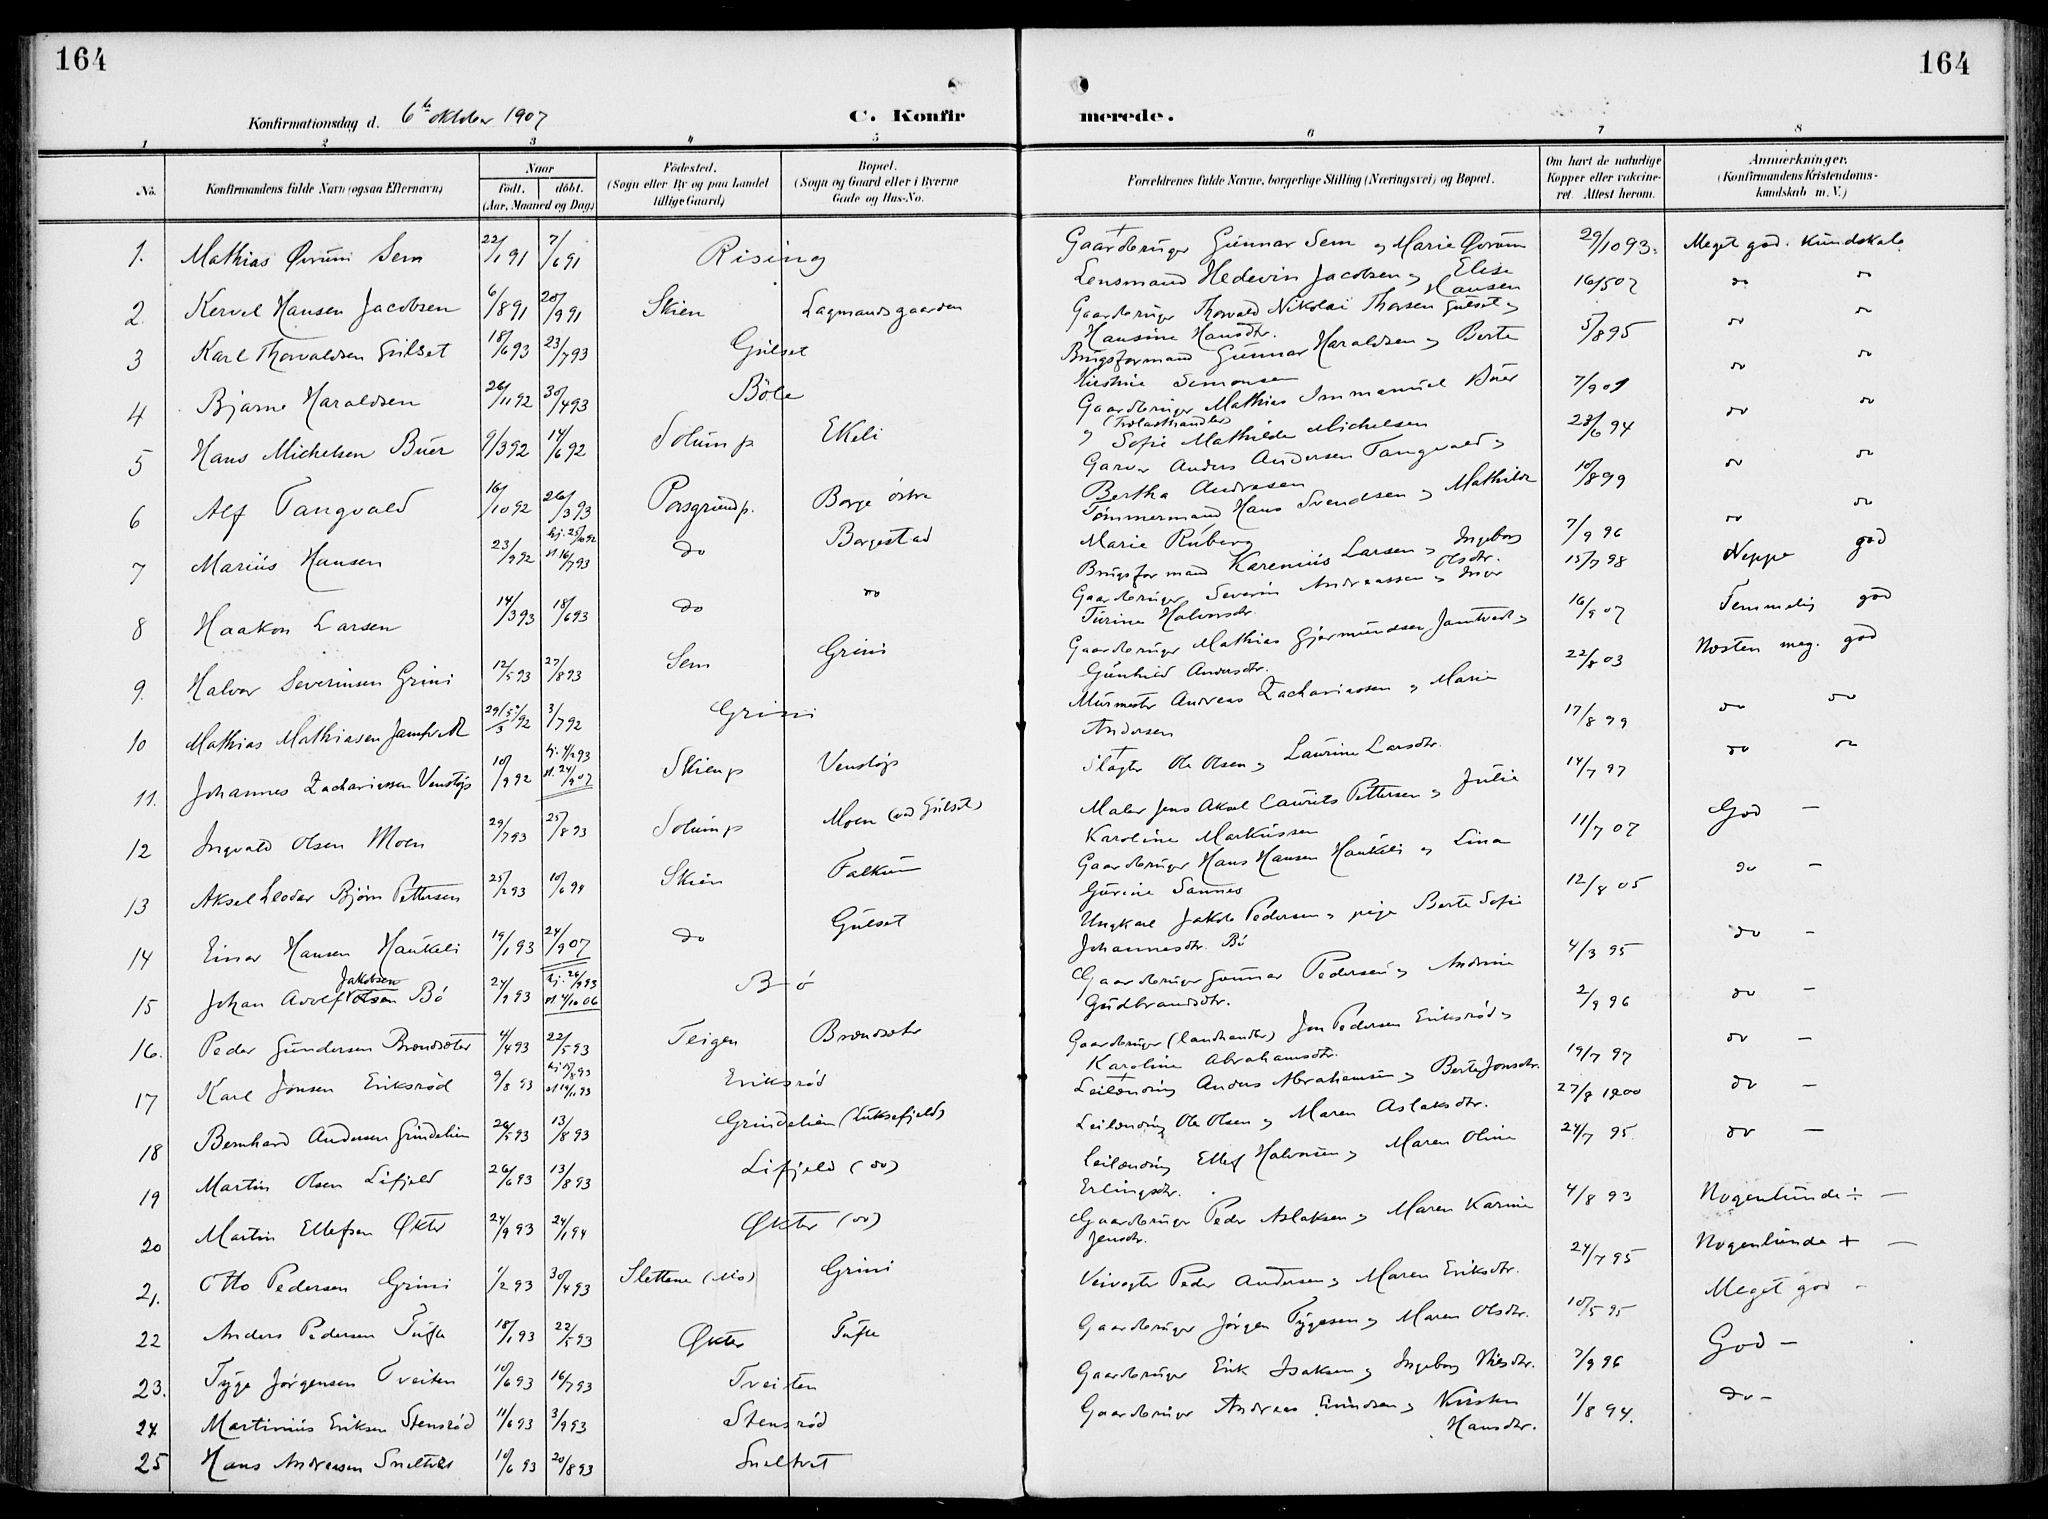 164
164
Konfirmationsdag d. 6te oktober 1907
C. Konfir
merede.
1 2 3 4 5 6 7 8
No.
Konfirmandens fulde Navn (ogsaa Efternavn)
Naar
födt. döbt.
(Aar, Maaned og Dag)
Födested.
(Sogn eller By og paa Landet
tillige Gaard)
Bopæl.
(Sogn og Gaard eller i Byerne
Gade og Hus-No.
Forældrenes fulde Navne, borgerlige Stilling (Næringsvei) og Bopæl.
Om havt de naturlige
Kopper eller vakcine-
ret. Attest herom.
Anmærkninger.
(Konfirmandens Kristendoms-
kundskab m. V.)
1. Mathias Øvrum Sem 22/1 91 7/6 91 Rising Gaardbruger Gunnar Sem og Marie Øvrum 29/10 93. Meget god. Kundskab
2. Kervel Hansen Jacobsen 6/8 91 20/9 91 Skien Lagmandsgaarden Lensmand Hedevin Jacobsen og Elise Hansen 16/5 07 do do
3 Karl Thorvaldsen Gulset 18/6 93 23/7 93 Gulset Gaardbruger Thorvald Nikolai Thorsen Gulset og
Hansine Hansdtr. 5/8 95 do do
4 Bjarne Haraldsen 26/11 92 30/4 93 Böle Brugsformand Gunnar Haraldsen og Berte
Kirstine Simonsen 7/9 01 do do
5 Hans Michelsen Buer 9/3 92 14/6 92 Solum p Ekeli Gaardbruger Mathias Immanuel Buer
(Trælasthandler)
og Sofie Mathilde Michelsen 23/6 94 do do
6 Alf Tangvald 16/10 92 26/3 93 Porsgrund p. Borge östre Garver Anders Andersen Tangvald og
Bertha Andresen 10/8 99 do do
7 Marius Hansen 23/9 92 hj. 25/10 92
st. 16/7 93 do Borgestad Tömmermand Hans Svendsen og Mathilde
Marie Ruberg 7/9 96 do do
8 Haakon Larsen 14/3 93 18/6 93 do do Brugsformand Karenius Larsen og Ingeborg
Olsdtr. 15/7 98 Neppe god
9. Halvor Severinsen Grini 12/5 93 27/8 93 Sem Grini Gaardbruger Severin Andreassen og Inger
Turine Halvorsdtr. 16/9 07 Temmelig god
10 Mathias Mathiasen Jamtvedt 3/7 92 Grini Gaardbruger Mathias Gjermundsen Jamtvedt og
Gunhild Andersdtr. 22/8 03 Næsten meg. god
11. Johannes Zachariassen Venstöp 10/9 92 hj. 4/2 93
st. 24/9 07 Skien p Venstöp Murmester Andreas Zachariassen og Marie
Andersen 17/8 99 do do
12 Ingvald Olsen Moen 29/7 93 25/8 93 Solum p Moen (ved Gulset) Slagter Ole Olsen og Laurine Larsdtr. 14/7 97 do do
13 Aksel Leodor Bjørn Pettersen 25/2 93 10/6 94 Skien Falkum Maler Jens Aksel Laurits Pettersen og Julie
Karoline Markussen 11/7 07 God –
14 Einar Hansen Haukeli 19/1 93 24/9 07 do Gulset Gaardbruger Hans Hansen Haukeli og Lina
Gurine Sannes 12/8 05 do –
Jakobsen
15 Johan Adolf Olsen Bö 24/9 93 hj. 26/9 93
st. 4/10 06 Bö Ungkarl Jakob Pedersen og pige Berte Sofie
Johannesdtr. Bö 4/3 95 do –
16. Peder Gundersen Brændsæter 4/4 93 22/5 93 Teigen Brændsæter Gaardbruger Gunnar Pedersen og Andrine
Gudbrandsdtr. 2/9 96 do –
17 Karl Jonsen Eriksröd 9/8 93 Eriksröd Gaardbruger (landhandler) Jon Pedersen Eriksröd og
Karoline Abrahamsdtr. 19/7 97 do –
18 Bernhard Andersen Grindalien 26/5 93 13/8 93 Grindalien (Luksefjeld) Leilænding Anders Abrahamsen og Berte Jonsdtr. 27/8 1900 do –
19 Martin Olsen Lifjeld 26/6 93 13/8 93 Lifjeld (do) Leilænding Ole Olsen og Maren Aslaksdtr. 24/7 95. do –
20 Martin Ellefsen Økter 24/9 93 24/1 94 Økter (do) Leilænding Ellef Halvorsen og Maren Oline
Erlingsdtr. 4/8 93 Nogenlunde ÷ –
21. Otto Pedersen Grini 1/2 93 30/4 93 Slettene (Mo) Grini Gaardbruger Peder Aslaksen og Maren Karine
Jensdtr. 24/7 95 Nogenlunde + –
22 Anders Pedersen Tufte 18/1 93 22/5 93 Økter Tufte Veivogter Peder Andersen og Maren Eriksdtr. 10/5 95 Meget god –
23. Tyge Jørgensen Tveiten 10/6 93 16/7 93 Tveiten Gaardbruger Jørgen Tygesen og Maren Olsdtr. 7/9 96 God –
24 Martinius Eriksen Stensröd 11/6 93 3/9 93 Stensröd Gaardbruger Erik Isaksen og Ingeborg Nilsdtr. 1/8 94. do –
25 Hans Andreasen Sneltvet 10/6 93 20/8 93 Sneltvet Gaardbruger Andreas og Kirsten
Hansdtr.